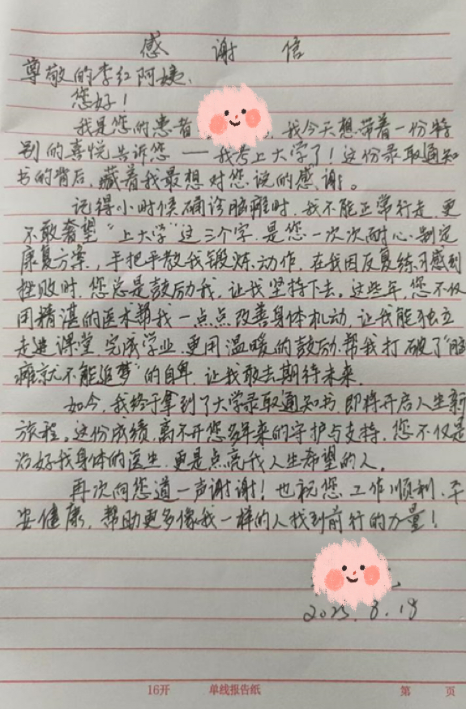 感谢信
尊敬的李红阿姨:
您好!
我是您的患者 ,我今天想带着一份特
别的喜悦告诉您——我考上大学了!这份录取通知
书的背后,藏着我最想对您说的感谢。
记得小时候确诊脑瘫时,我不能正常行走,更
不敢奢望“上大学”这三个字,是您一次次耐心制定
康复方案,手把手教我锻炼动作,在我因反复练习感到
挫败时,您总是鼓励我,让我坚持下去。这些年,您不仅
用精湛的医术帮我一点点改善身体机动,让我能独立
走进课堂,完成学业,更用温暖的鼓励,帮我打破了“脑
瘫就不能追梦”的自卑,让我敢去期待未来。
如今,我终于拿到了大学录取通知书,即将开启人生新
旅程。这份成绩,离不开您多年来的守护与支持,您不仅是
治好我身体的医生,更是点亮我人生希望的人。
再次向您道一声谢谢!也祝您工作顺利,平
安健康,帮助更多像我一样的人找到前行的力量!
2025.8.18
16开 单线报告纸 第 页